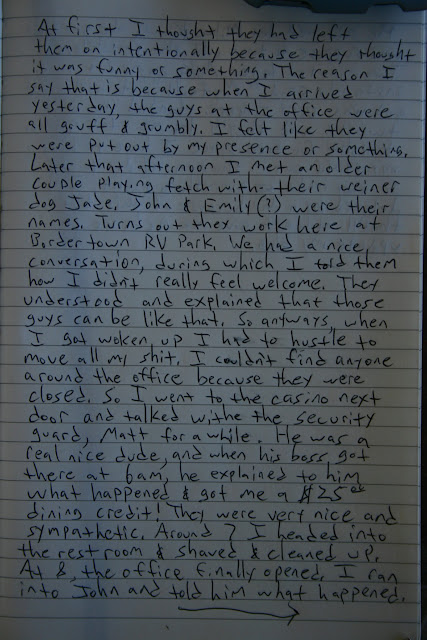 At first I thought they had left
them on intentionally because they thought
it was funny or something. The reason I
say that is because when I arrived
yesterday, the guys at the office were
all gruff & grumbly. I felt like they
were put out by my presence or something.
Later that afternoon I met an older
couple playing fetch with their weiner
dog Jade. John & Emily(?) were their
names. Turns out they work here at
Bordertown RV Park. We had a nice
conversation, during which I told them
how I didn't really feel welcome. They
understood and explained that those
guys can be like that. So anyways, when
I got woken up I had to hustle to
move all my shit. I couldn't find anyone
around the office because they were
closed. So I went to the casino next
door and talked withe the security
guard, Matt for a while. He was a
real nice dude, and when his boss got
there at 6am, he explained to him
what happened & got me a $25⁰⁰
dining credit! They were very nice and
sympathetic. Around 7 I headed into
the restroom & shaved & cleaned up.
At 8, the office finally opened. I ran
into John and told him what happened.